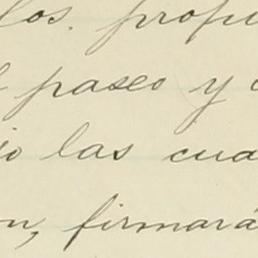 los. propu
paseo y
jo las cua
on, firmará